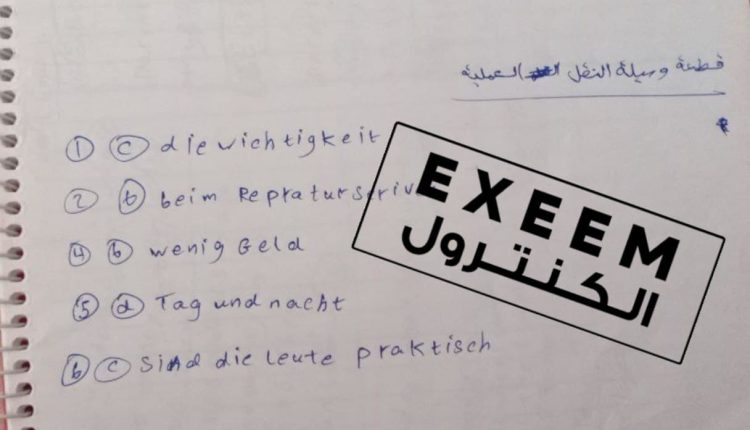 قطعة وسيلة النقل العملية
① ⓒ die wichtigkeit
② ⓑ beim Repraturseriv
④ ⓑ wenig Geld
⑤ ⓓ Tag und nacht
⑥ ⓒ sind die leute praktisch
EXEEM
الكنترول